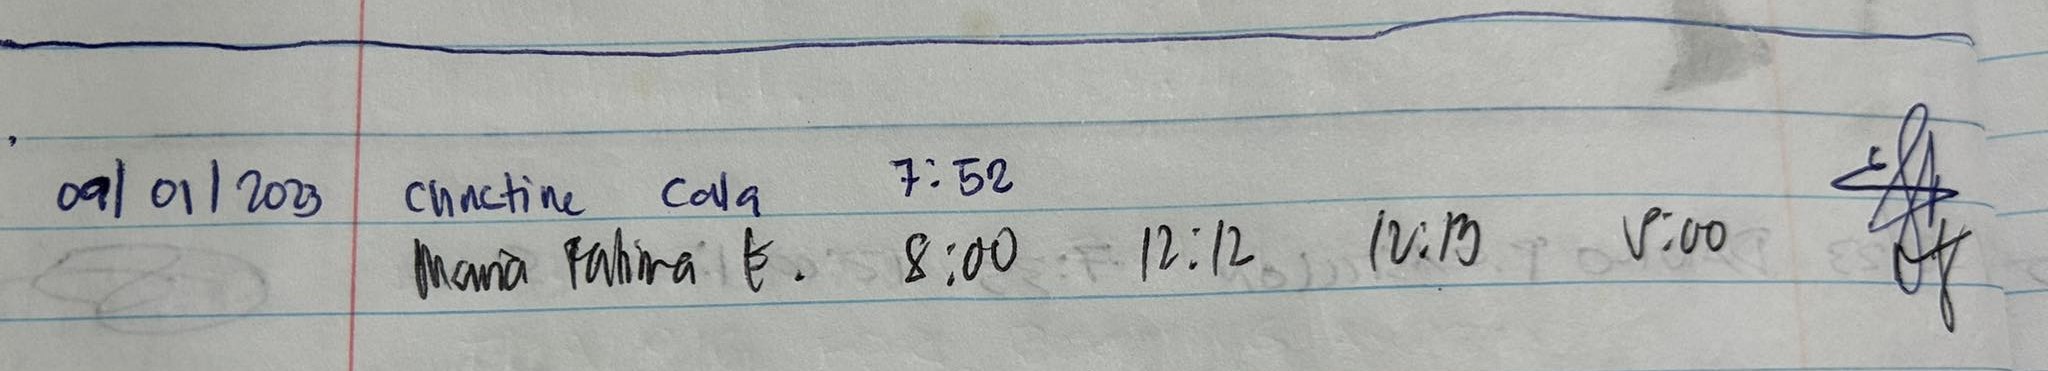 09/01/2023 Chrictine Cala 7:52
Maria Fatima E. 8:00 12:12 12:13 5:00